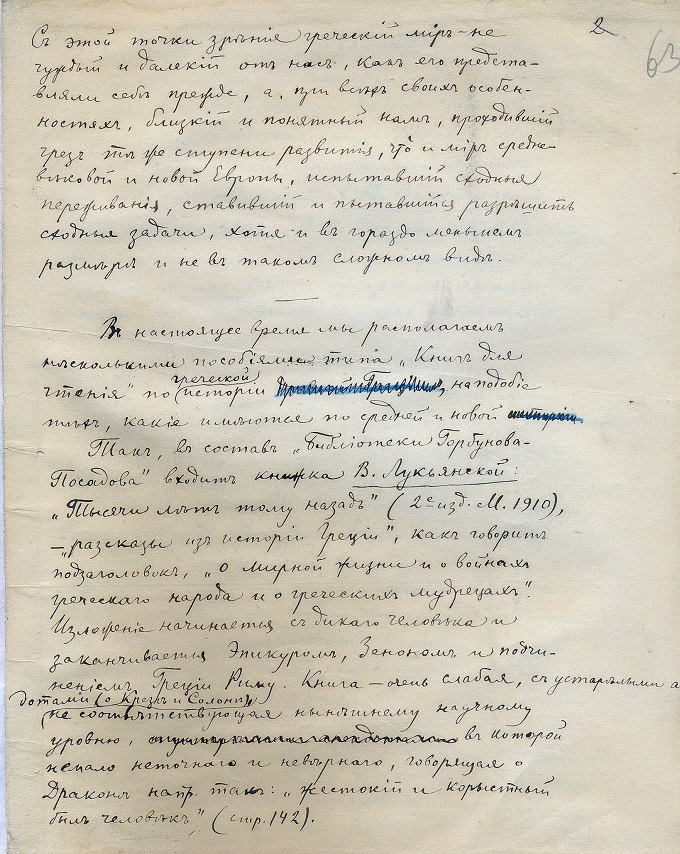 2
63
Съ этой точки зрѣнія греческій міръ – не
чуждый и далекій отъ насъ, какъ его предста-
вляли себѣ прежде, а, при всѣхъ своихъ особен-
ностяхъ, близкій и понятный намъ, проходившій
чрезъ тѣ же ступени развитія, что и міръ средне-
вѣковой и новой Европы, испытавшій сходныя
переживанія, ставившій и пытавшійся разрѣшить
сходныя задачи, хотя и въ гораздо меньшемъ
размѣрѣ и не въ такомъ сложномъ видѣ.
Въ настоящее время мы располагаемъ
нѣсколькими пособіями типа „Книгъ для
чтенія" по греческой исторіи, наподобіе
тѣхъ, какіе имѣются по средней и новой
Такъ, въ составъ „Библіотеки Горбунова-
Посадова" входитъ книжка В. Лукьянской:
„Тысячи лѣтъ тому назадъ" (2е изд. М. 1910),
– „разсказы изъ исторіи Греціи", какъ говоритъ
подзаголовокъ, „о мирной жизни и о войнахъ
греческаго народа и о греческихъ мудрецахъ".
Изложеніе начинается съ дикаго человѣка и
заканчивается Эпикуромъ, Зенономъ и подчи-
неніемъ Греціи Риму. Книга – очень слабая, съ устарѣлыми а
дотами (о Крезѣ и Солонѣ),
не соотвѣтствующая нынѣшнему научному
уровню, въ которой
немало неточнаго и невѣрнаго, говорящая о
Драконѣ напр. такъ: „жестокій и корыстный
былъ человѣкъ" (стр. 142).